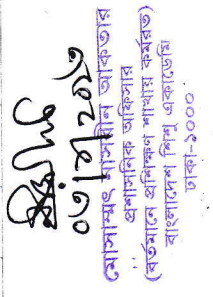 ০৩/০৭/২০১৩
মোসাম্মৎ নাসরিন আকতার
প্রশাসনিক অফিসার
(বর্তমানে প্রশিক্ষণ শাখায় কর্মরত)
বাংলাদেশ শিশু একাডেমি
ঢাকা-১০০০